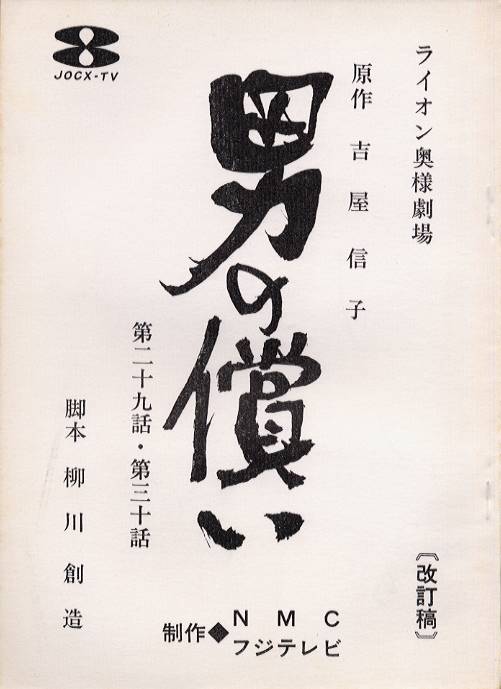 JOCX-TV
ライオン奥様劇場
原作 吉屋信子
男の償い
第二十九話・第三十話
脚本 柳川創造
〔改訂稿〕
制作◆NMC
フジテレビ